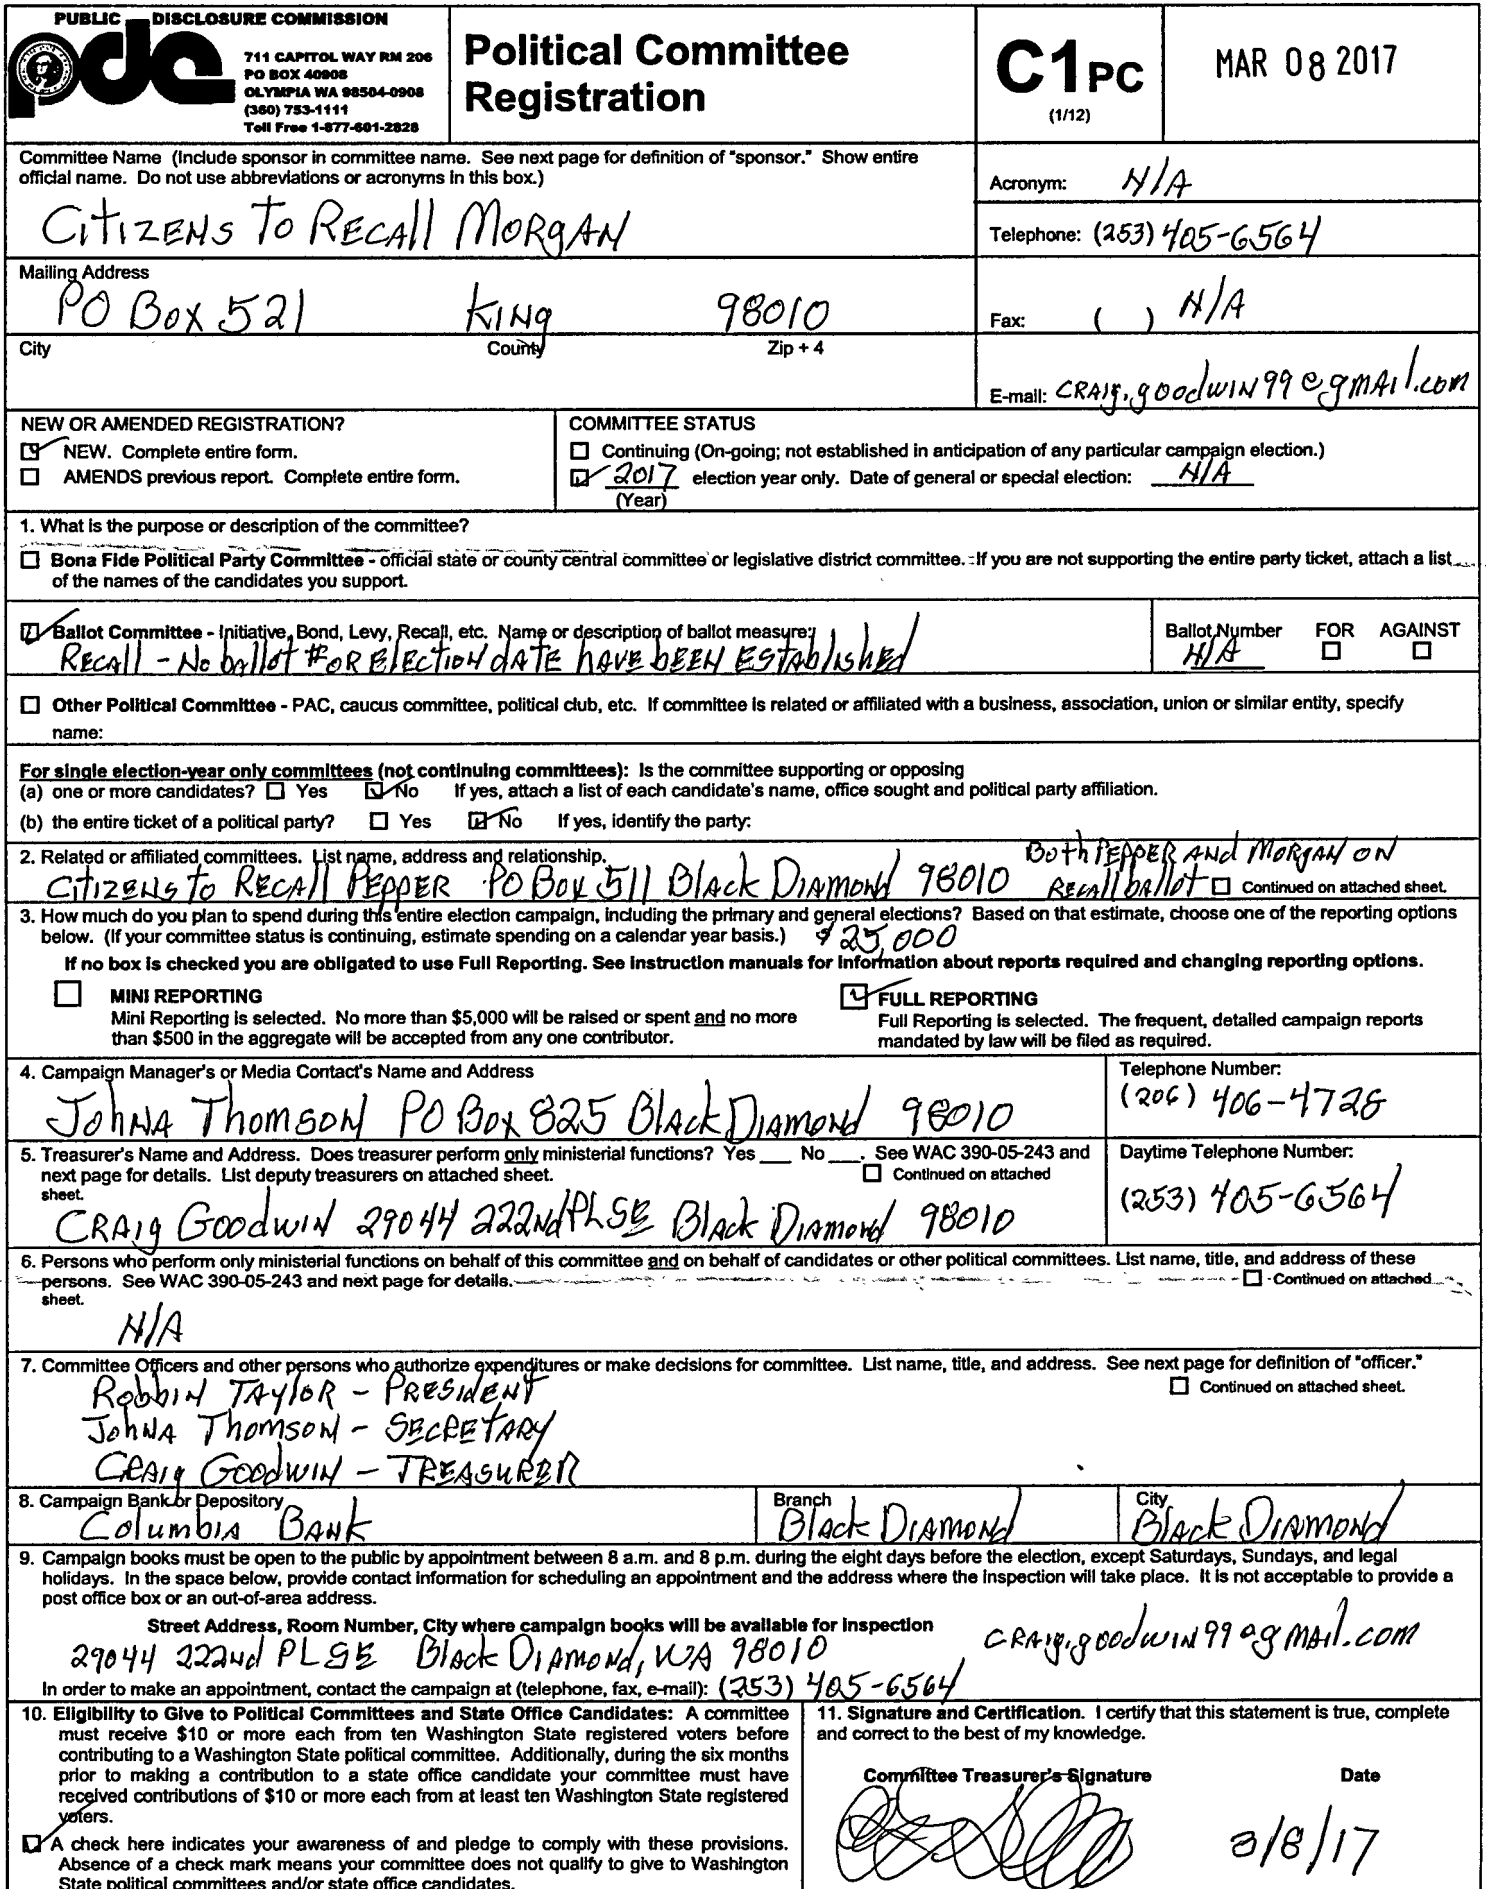 PUBLIC DISCLOSURE COMMISSION
pdc
711 CAPITOL WAY RM 206
PO BOX 40908
OLYMPIA WA 98504-0908
(360) 753-1111
Toll Free 1-877-601-2828
Political Committee
Registration
C1 PC
(1/12)
MAR 08 2017
Committee Name (Include sponsor in committee name. See next page for definition of "sponsor." Show entire
official name. Do not use abbreviations or acronyms in this box.)
CITIZENS TO RECALL MORGAN
Acronym: N/A
Telephone: (253) 405-6564
Mailing Address
PO BOX 521 KING 98010
City County Zip + 4
Fax: ( ) N/A
E-mail: CRAIG.goodwin99@gmail.com
NEW OR AMENDED REGISTRATION?
NEW. Complete entire form.
AMENDS previous report. Complete entire form.
COMMITTEE STATUS
Continuing (On-going; not established in anticipation of any particular campaign election.)
2017 election year only. Date of general or special election: N/A
(Year)
1. What is the purpose or description of the committee?
Bona Fide Political Party Committee - official state or county central committee or legislative district committee. If you are not supporting the entire party ticket, attach a list
of the names of the candidates you support.
Ballot Committee - Initiative, Bond, Levy, Recall, etc. Name or description of ballot measure:
RECALL - No ballot # OR ELECTION DATE HAVE BEEN ESTABLISHED
Ballot Number FOR AGAINST
N/A
Other Political Committee - PAC, caucus committee, political club, etc. If committee is related or affiliated with a business, association, union or similar entity, specify
name:
For single election-year only committees (not continuing committees): Is the committee supporting or opposing
(a) one or more candidates? Yes No If yes, attach a list of each candidate's name, office sought and political party affiliation.
(b) the entire ticket of a political party? Yes No If yes, identify the party:
2. Related or affiliated committees. List name, address and relationship.
CITIZENS TO RECALL PEPPER PO BOX 511 BLACK DIAMOND 98010
BOTH PEPPER AND MORGAN ON
RECALL BALLOT Continued on attached sheet.
3. How much do you plan to spend during this entire election campaign, including the primary and general elections? Based on that estimate, choose one of the reporting options
below. (If your committee status is continuing, estimate spending on a calendar year basis.) $25,000
If no box is checked you are obligated to use Full Reporting. See instruction manuals for information about reports required and changing reporting options.
MINI REPORTING
Mini Reporting is selected. No more than $5,000 will be raised or spent and no more
than $500 in the aggregate will be accepted from any one contributor.
FULL REPORTING
Full Reporting is selected. The frequent, detailed campaign reports
mandated by law will be filed as required.
4. Campaign Manager's or Media Contact's Name and Address
JOHNA THOMSON PO BOX 825 BLACK DIAMOND 98010
Telephone Number:
(206) 406-4728
5. Treasurer's Name and Address. Does treasurer perform only ministerial functions? Yes ___ No ___. See WAC 390-05-243 and
next page for details. List deputy treasurers on attached sheet. Continued on attached
sheet.
CRAIG GOODWIN 29044 222nd PL SE BLACK DIAMOND 98010
Daytime Telephone Number:
(253) 405-6564
6. Persons who perform only ministerial functions on behalf of this committee and on behalf of candidates or other political committees. List name, title, and address of these
persons. See WAC 390-05-243 and next page for details. Continued on attached
sheet.
N/A
7. Committee Officers and other persons who authorize expenditures or make decisions for committee. List name, title, and address. See next page for definition of "officer."
Continued on attached sheet.
ROBBIN TAYLOR - PRESIDENT
JOHNA THOMSON - SECRETARY
CRAIG GOODWIN - TREASURER
8. Campaign Bank or Depository Branch City
COLUMBIA BANK BLACK DIAMOND BLACK DIAMOND
9. Campaign books must be open to the public by appointment between 8 a.m. and 8 p.m. during the eight days before the election, except Saturdays, Sundays, and legal
holidays. In the space below, provide contact information for scheduling an appointment and the address where the inspection will take place. It is not acceptable to provide a
post office box or an out-of-area address.
Street Address, Room Number, City where campaign books will be available for inspection
29044 222nd PL SE BLACK DIAMOND, WA 98010 CRAIG.goodwin99@gmail.com
In order to make an appointment, contact the campaign at (telephone, fax, e-mail): (253) 405-6564
10. Eligibility to Give to Political Committees and State Office Candidates: A committee
must receive $10 or more each from ten Washington State registered voters before
contributing to a Washington State political committee. Additionally, during the six months
prior to making a contribution to a state office candidate your committee must have
received contributions of $10 or more each from at least ten Washington State registered
voters.
A check here indicates your awareness of and pledge to comply with these provisions.
Absence of a check mark means your committee does not qualify to give to Washington
State political committees and/or state office candidates.
11. Signature and Certification. I certify that this statement is true, complete
and correct to the best of my knowledge.
Committee Treasurer's Signature Date
3/8/17